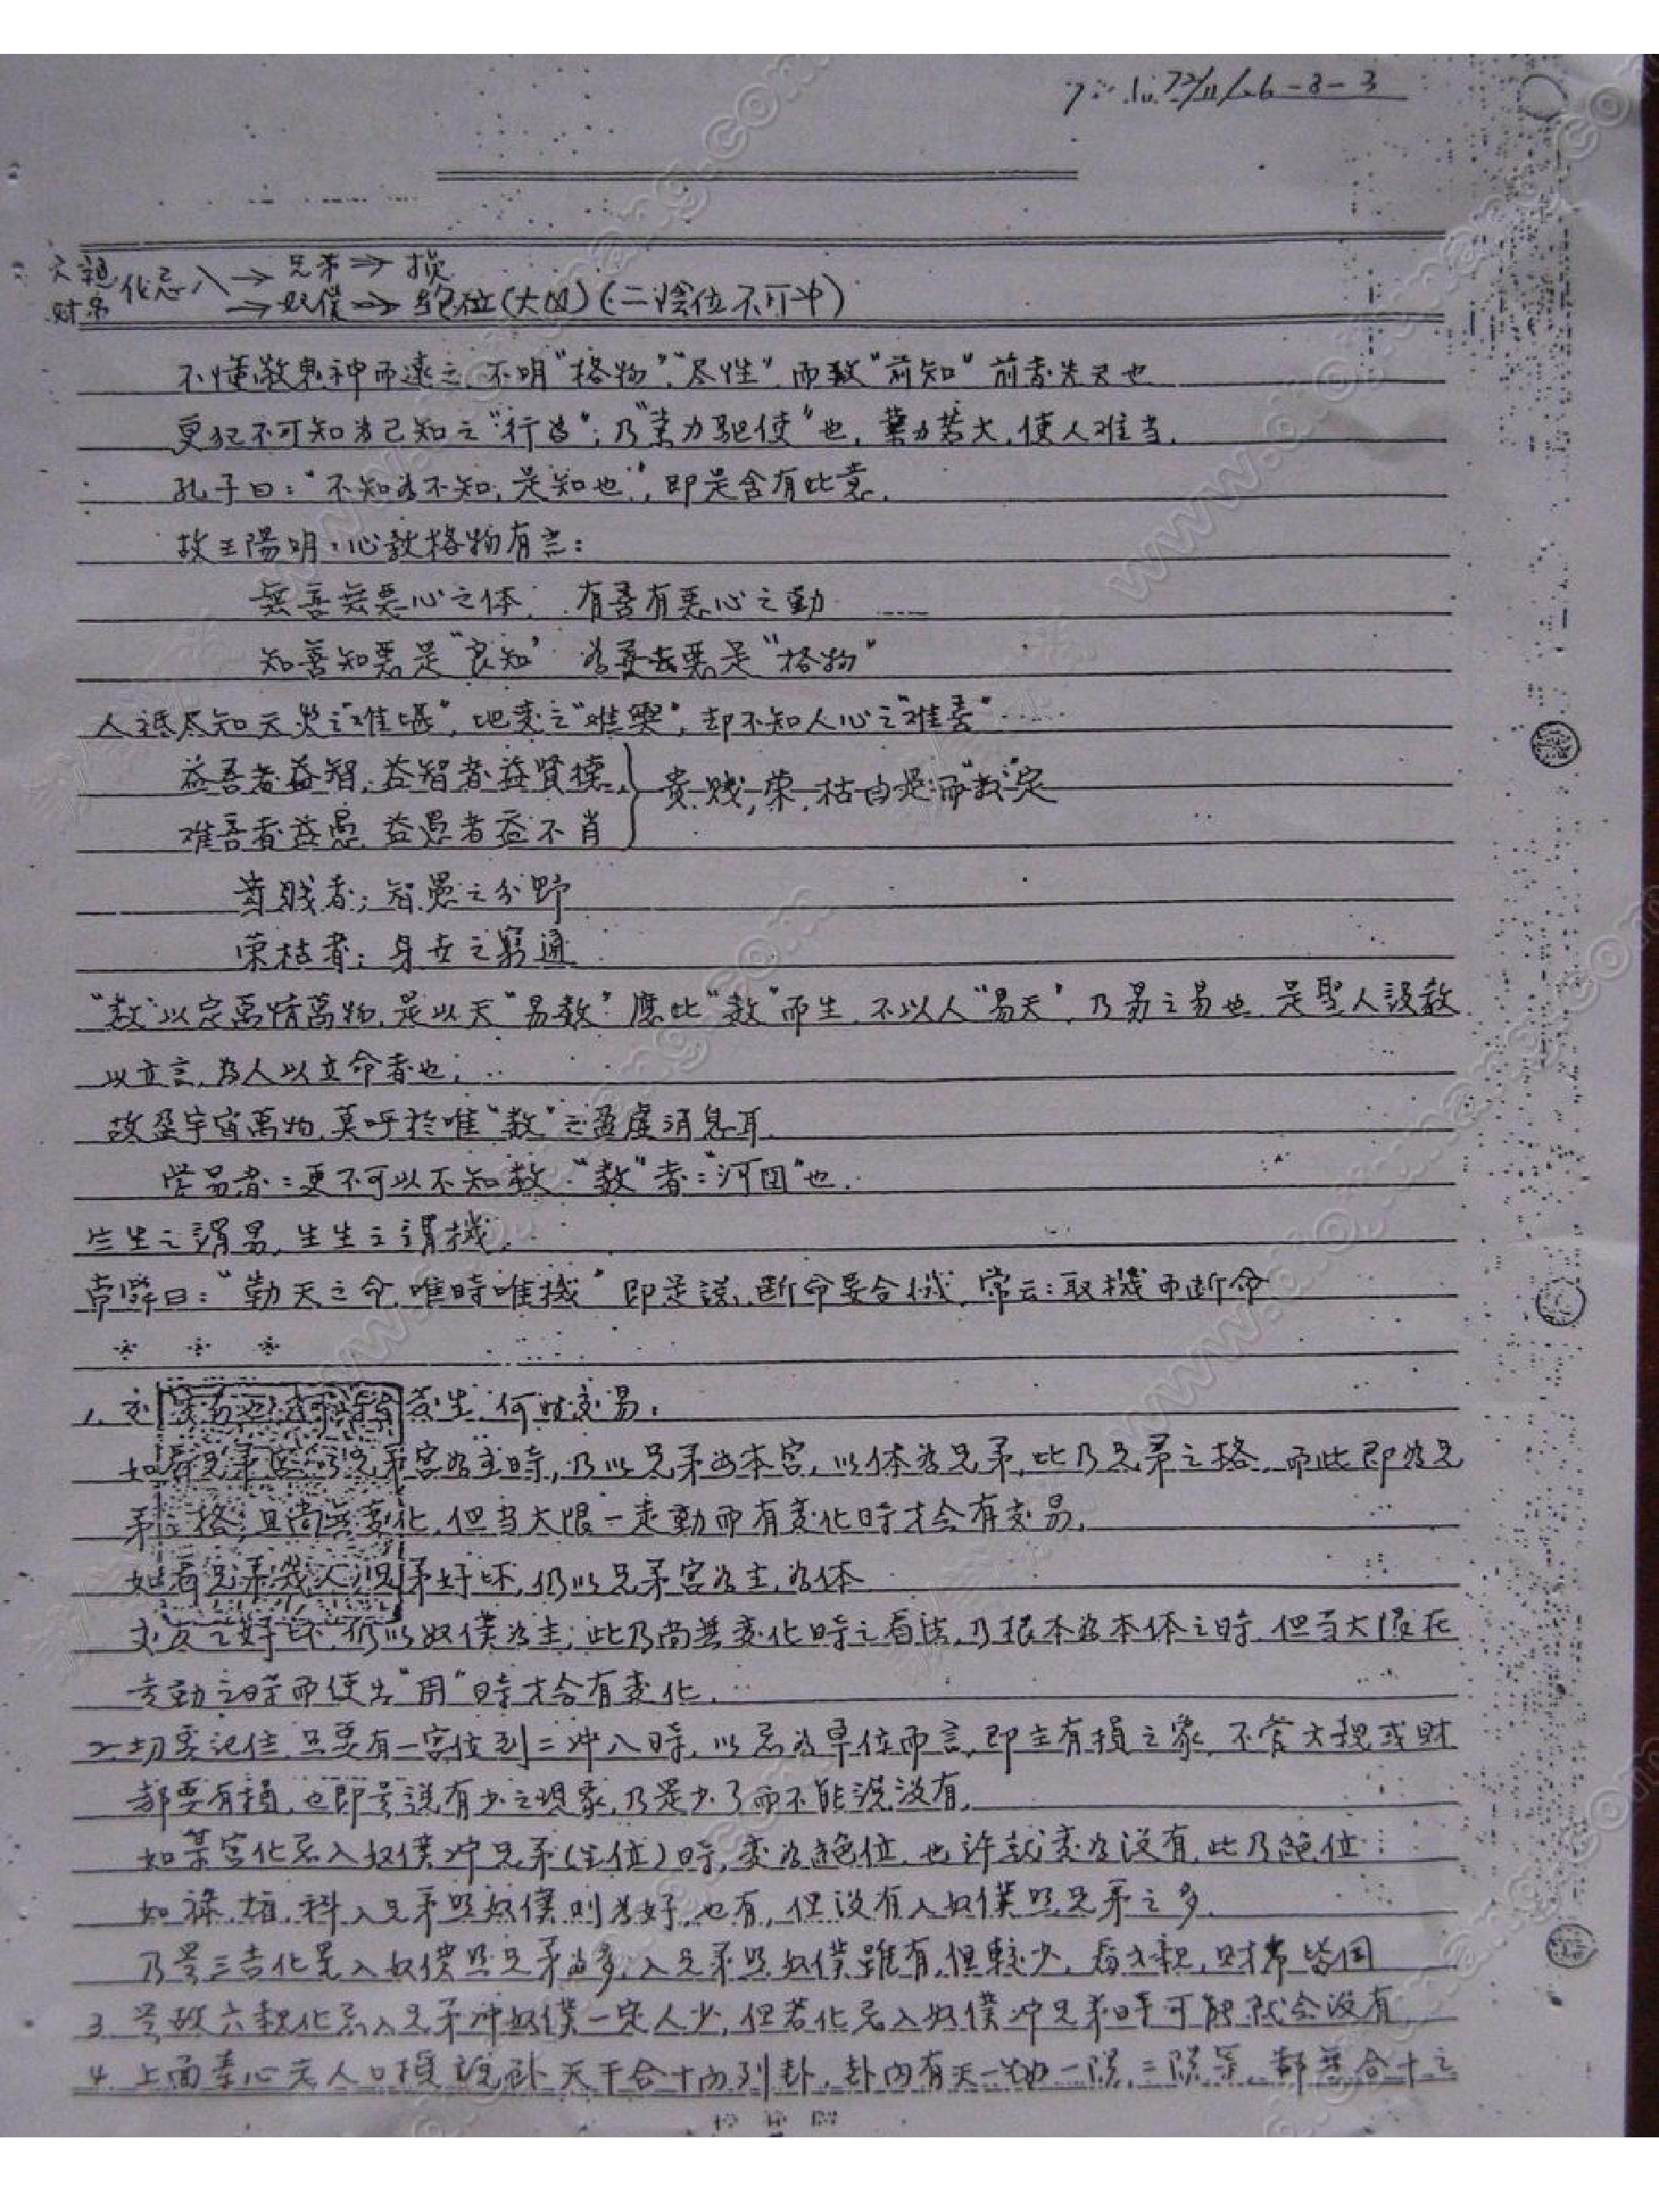 73/11/26-3-3
六親 财帛 化忌入→兄弟→損
→奴僕→絕位(大凶)(二陰位不可冲)
不懂敬鬼神而遠之,不明"格物","尽性"而致"前知"前者先天也
更犯不可知为己知之"行为";乃"業力驅使"也,業力若大,使人难当,
孔子曰:"不知为不知,是知也",即是含有此意,
故王陽明·心教格物有言:
無善無惡心之体, 有善有惡心之動
知善知惡是"良知" 为善去惡是"格物"
人祗尽知天災之"难堪",地变之"难",却不知人心之"难善"
益善者益智,益智者益賢德,
难善者益愚,益愚者益不肖 } 贵.贱,荣.枯由是而"数"定
贵賎者;智愚之分野
荣枯者;身世之窮通
"数"以定萬情萬物,是以天"易数"應此"数"而生,不以人"易天",乃易之易也,是聖人設教
以立言,为人以立命者也;
故盈宇宙萬物,莫呼於唯"数"之盈虛消息耳.
学易者:更不可以不知数."数"者:"河图"也.
生生之謂易,生生之謂機,
帝舜曰:"勅天之命,唯時唯機"即是説,断命要合機,常云:取機而断命
* * *
1. 变生,何时交易.
如看兄弟宮以兄弟宮为主時,乃以兄弟为本宮,以体为兄弟,此乃兄弟之格,而此即为兄
弟之格,且尚無变化,但当大限一走動而有变化時才会有交易,
如看兄弟幾人,兄弟好坏,仍以兄弟宮为主,为体
交友之好坏,仍以奴僕为主;此乃尚無变化時之看法,乃根本为本体之時,但当大限在
走動之時而使出"用"時才会有变化.
2.切要記住,只要有一宮位到二冲八時,以忌为单位而言,即主有損之象,不管六親或財
都要有損,也即是説有少之現象,乃是少了而不能説沒有,
如某宮化忌入奴僕冲兄弟(生位)時,变为絕位,也许就变为沒有,此乃絕位
如祿.权.科入兄弟照奴僕則为好,也有,但沒有入奴僕照兄弟之多.
乃是三吉化是入奴僕照兄弟为多,入兄弟照奴僕雖有,但較少,看六親,財帛皆同
3. 是故六親化忌入兄弟冲奴僕一定人少,但若化忌入奴僕冲兄弟時可能就会沒有
4. 上面素心老人口授說卦天干合十為列卦,卦内有天一地一